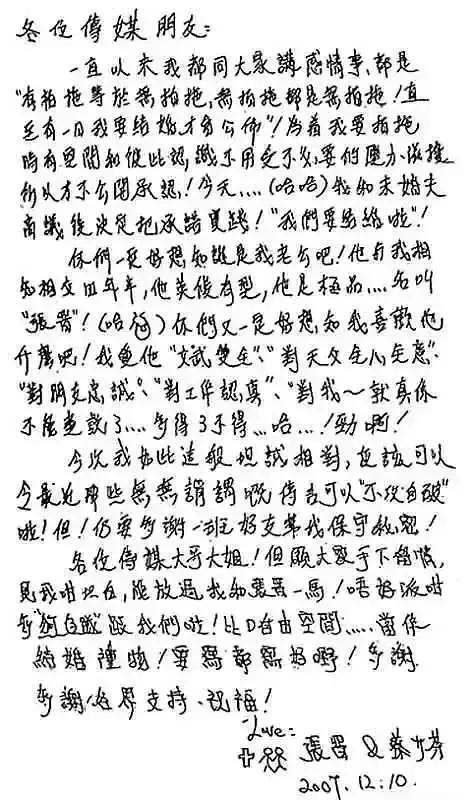 各位傳媒朋友:
一直以來我都同大家講感情事,都是
"有拍拖等於無拍拖,無拍拖都是無拍拖!直
至有一日我要結婚,才會公佈"!為着我要拍拖
時有空間和彼此認識不用受不必要的壓力
所以才不公開承認!今天....(哈哈)我和未婚夫
商議後決定把承諾實踐!"我們要結婚啦"!
你們一定好想知誰是我老公吧!他與我相
知相交四年半,他英俊有型,他是極品....名叫
"張晉"!(哈哈)你們又一定好想知我喜歡他
什麼吧!我覺他"文武雙全"、"對天父全心全意"、
"對朋友忠誠"、"對工作認真"、"對我~就真係
不能盡說了....多得3不得...哈...!勁啊!
今次我如此這般坦誠相對,應該可以
令最近那些無無謂謂嘅傳言可以"不攻自破"
啦!但!仍要多謝一班好友幫我保守秘密!
各位傳媒大哥大姐!但願大家手下留情,
見我咁坦白,能放過我和張晉一馬!唔好派咁
多"狗仔隊"跟我們啦!比D自由空間.....當係
結婚禮物!要寫都寫好嘢!多謝
多謝各界支持、祝福!
Love:
張晉 & 蔡少芬
2007.12.10.